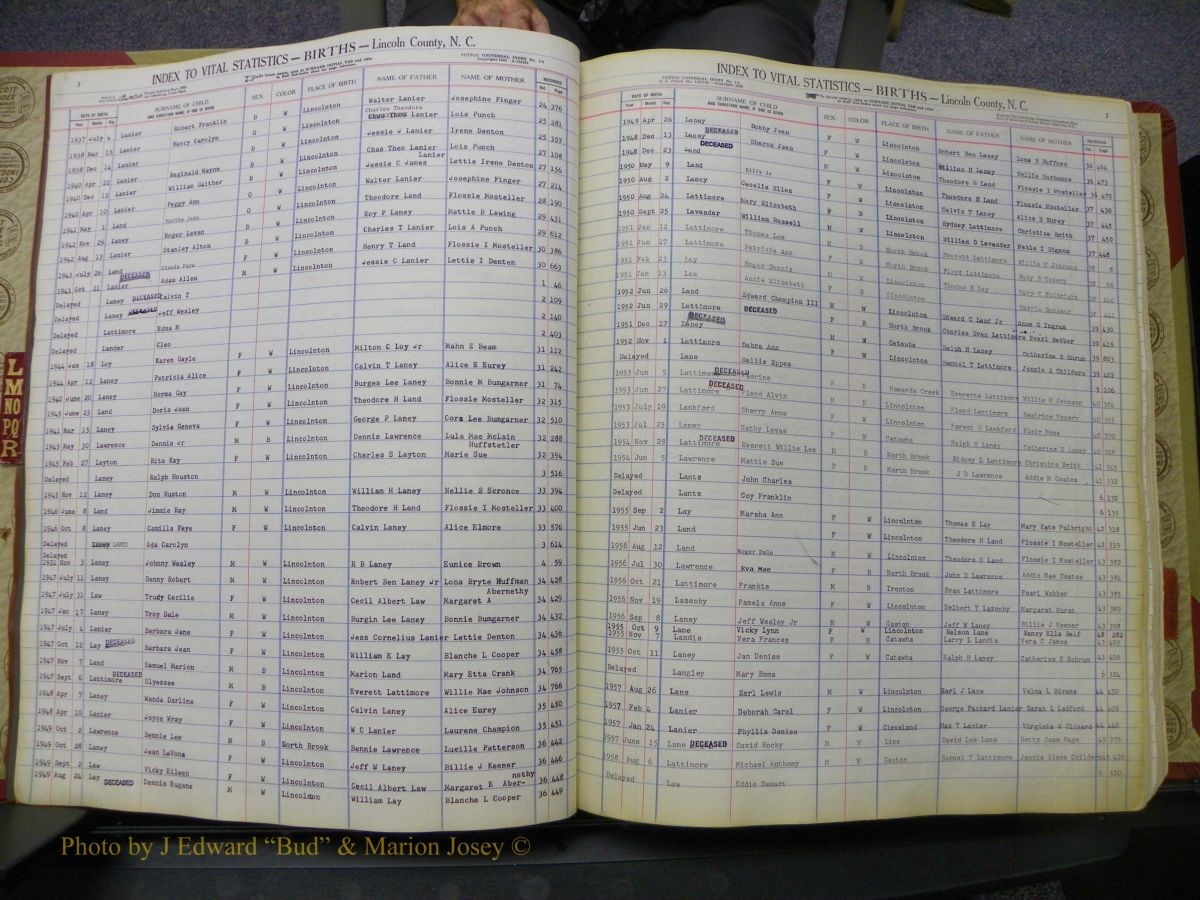 INDEX TO VITAL STATISTICS — BIRTHS — Lincoln County, N. C.
3
DATE OF BIRTH SURNAME OF CHILD SEX COLOR PLACE OF BIRTH NAME OF FATHER NAME OF MOTHER RECORDED
Year Month Day AND CHRISTIAN NAME, IF ONE IS GIVEN Vol. Page
1937 July 4 Lanier Robert Franklin B W Lincolnton Walter Lanier Josephine Finger 24 376
1938 Mar 15 Lanier Nancy Carolyn G W Lincolnton Charles Theodore Lanier Lois Punch 25 281
1938 Dec 14 Lanier B W Lincolnton Jessie J Lanier Irene Denton 25 357
1940 Apr 22 Lanier Reginald Wayne B W Lincolnton Chas Theo Lanier Lois Punch 27 108
1940 Dec 12 Lanier William Gaither B W Lincolnton Jessie C James Lanier Lettie Irene Denton 27 156
1940 Apr 10 Lanier Peggy Ann G W Lincolnton Walter Lanier Josephine Finger 27 214
1941 May 1 Land Martha Jean G W Lincolnton Theodore Land Flossie Mosteller 28 190
1942 Nov 29 Laney Roger Lavan B W Lincolnton Roy P Laney Mattie B Lawing 29 431
1942 Aug 13 Lanier Stanley Alton B W Lincolnton Charles T Lanier Lois A Punch 29 612
1943 July 26 Land DECEASED Glenda Faye F W Lincolnton Henry T Land Flossie I Mosteller 30 386
1943 Oct 21 Lanier Adam Allen M W Lincolnton Jessie C Lanier Lettie I Denten 30 663
Delayed Laney DECEASED Calvin T 1 46
Delayed Laney DECEASED Jeff Wesley 2 109
Delayed Lattimore Edna M 2 140
Delayed Lander Cleo 2 403
1944 Jan 18 Loy Karen Gayle F W Lincolnton Milton C Loy Jr Mahn Z Beam 31 112
1944 Apr 12 Laney Patricia Alice F W Lincolnton Calvin T Laney Alice E Eurey 31 242
1940 June 20 Laney Norma Gay F W Lincolnton Burgea Lee Laney Bonnie M Bumgarner 31 74
1945 June 23 Land Doris Jean F W Lincolnton Theodore H Land Flossie Mosteller 32 315
1941 Mar 15 Laney Sylvia Geneva F W Lincolnton George P Laney Cora Lee Bumgarner 32 510
1945 May 30 Lawrence Dennis Jr M B Lincolnton Dennis Lawrence Lula Mae McLain Huffstetler 32 288
1945 Feb 27 Layton Rita Kay F W Lincolnton Charles S Layton Marie Sue 32 394
Delayed Laney Ralph Houston 3 516
1945 Nov 12 Laney Don Huston M W Lincolnton William H Laney Nellie S Scronce 33 394
1946 June 8 Land Jimmie Ray M W Lincolnton Theodore H Land Flossie I Mosteller 33 400
1946 Oct 8 Laney Camilla Faye F W Lincolnton Calvin Laney Alice Elmore 33 576
Delayed LANTZ Ada Carolyn 3 614
Delayed
1931 Nov 3 Laney Johnny Wesley M W Lincolnton R B Laney Eunice Brown 4 59
1947 July 11 Laney Benny Robert M W Lincolnton Robert Ben Laney Jr Lona Bryte Huffman 34 428
1947 July 31 Law Trudy Cecilie F W Lincolnton Cecil Albert Law Margaret A Abernethy 34 429
1947 Jan 17 Laney Troy Dale M W Lincolnton Burgin Lee Laney Bonnie Bumgarner 34 432
1947 July 4 Lanier Barbara Jane F W Lincolnton Jess Cornelius Lanier Lettie Denton 34 436
1947 Oct 12 Lay DECEASED Barbara Jean F W Lincolnton William E Lay Blanche L Cooper 34 458
1947 Nov 7 Land Samuel Marion M B Lincolnton Marion Land Mary Etta Crank 34 765
1947 Sept 6 Lattimore DECEASED Ulyessee M B Lincolnton Everett Lattimore Willie Mae Johnson 34 766
1948 Apr 7 Laney Wanda Darline F W Lincolnton Calvin Laney Alice Eurey 35 450
1948 Apr 10 Lanier Joyce Wray F W Lincolnton W C Lanier Laurene Champion 35 451
1949 Oct 2 Lawrence Bennie Lee M B North Brook Bennie Lawrence Lueille Patterson 36 442
1949 Oct 28 Laney Jean LaVona F W Lincolnton Jeff W Laney Billie J Keener 36 446
1949 Sept 2 Law Vicky Eileen F W Lincolnton Cecil Albert Law Margaret E Aber-nethy 36 448
1949 Aug 24 Lay DECEASED Dennis Eugene M W Lincolnton William Lay Blanche L Cooper 36 449
INDEX TO VITAL STATISTICS — BIRTHS — Lincoln County, N. C.
3
DATE OF BIRTH SURNAME OF CHILD SEX COLOR PLACE OF BIRTH NAME OF FATHER NAME OF MOTHER RECORDED
Year Month Day AND CHRISTIAN NAME, IF ONE IS GIVEN Vol. Page
1949 Apr 26 Laney Bobby Jean F W Lincolnton Robert Ben Laney Lona B Huffman 36 466
1948 Dec 13 Laney DECEASED Sharon Jean F W Lincolnton William H Laney Nellie Sarbonne 36 473
1948 Dec 23 Land DECEASED W Lincolnton Theodore H Land Flossie I Mosteller 36 475
1950 May 9 Land Billy Jr W Lincolnton Theodore H Land Flossie Mosteller 37 430
1950 Aug 2 Laney Cecelia Ellen F W Lincolnton Calvin T Laney Alice E Eurey 37 445
1950 Aug 24 Lattimore Mary Elizabeth F B Lincolnton Sydney Lattimore Christine Smith 37 450
1950 Sept 25 Lavander William Russell M W Lincolnton William D Lavander Merle I Sigmon 37 448
1951 Jan 12 Lattimore Thomas Lee M B North Brook Everett Lattimore Willie M Johnson 38 8
1951 Jun 17 Lattimore Patricia Ann F B North Brook Floyd Lattimore Ruby B Ussery 38 66
1951 Feb 23 Lay Roger Dennis Lincolnton Thomas E Lay Mary K Fulbright 38
1951 Jan 13 Law Annie Elizabeth F B Lincolnton Carrie 38
1952 Jun 26 Land Edward Champion III M W Lincolnton Edward C Land Jr Anne G Ingram 39 430
1952 Jun 29 Lattimore DECEASED F B North Brook Charles Evan Lattimore Pearl Webber 39 415
1951 Dec 17 Laney DECEASED W Catawba Ralph H Laney Catherine H Shrum 39 803
1952 Nov 1 Lattimore Debra Ann F W Lincolnton Samuel T Lattimore Jannie A Childers 39 402
Delayed Lane Sallie Eppes 5 106
1953 Jun 5 Lattimore DECEASED F B Howards Creek Everette Lattimore Willie M Johnson 40 364
1953 Jun 27 Lattimore DECEASED Floyd Alvin M B Lincolnton Floyd Lattimore Beatrice Ussery
1953 July 19 Lankford Sherry Anne F W Lincolnton Forest G Lankford Blair Moss
1953 Jul 25 Laney Kathy Lavae F W Catawba Ralph H Laney Catherine D Laney
1954 Nov 28 Lattimore DECEASED Everett Willie Lee M B North Brook Sidney L Lattimore Christine Smith 41 343
1954 Jun 5 Lawrence Mattie Sue F B North Brook J D Lawrence Addie M Coates 41 332
Delayed Lantz John Charles 6 132
Delayed Lantz Coy Franklin 6 135
1955 Sep 2 Lay Marsha Ann F W Lincolnton Thomas E Lay Mary Kate Fulbright 42 318
1955 Jun 23 Land F W Lincolnton Theodore H Land Flossie I Mosteller 42 319
1956 Aug 12 Land Roger Dale M W Lincolnton Theodore H Land Flossie I Mosteller 43 382
1956 Jul 30 Lawrence Eva Mae F B North Brook John D Lawrence Addie Mae Coates 43 384
1956 Oct 21 Lattimore Frankie M B Ironton Evan Lattimore Pearl Webber 43 385
1956 Nov 19 Lazenby Pamela Anne F W Lincolnton Delbert T Lazenby Margaret Burat 43 389
1956 Sep 8 Laney Jeff Wesley Jr M W Gaston Jeff W Laney Billie J Keener 43 398
1955 Oct 9 Lane Vicky Lynn F W Lincolnton Nelson Lane Nancy Ella Self 48 282
1955 Nov 7 Landis Vera Frances F B Catawba Larry L Landis Vera G James 43 405
1955 Oct 11 Laney Jan Denise F W Catawba Ralph H Laney Catherine H Schrum 43 406
Delayed Langley Mary Emma 6 324
1957 Aug 26 Lane Earl Lewis M W Lincolnton Earl J Lane Velma L Rivens 44 430
1957 Feb 4 Lanier Deborah Carol F W Lincolnton George Packard Lanier Sarah L Ledford 44 409
1957 Jan 24 Lanier Phyllis Denise F W Cleveland Max T Lanier Virginia W Clinard 44 446
1957 June 15 Lane DECEASED David Rocky M W Linc David Lee Lane Hotty Jean Page 45 375
1958 Aug 6 Lattimore Michael Anthony M W Gaston Samuel T Lattimore Jennie Alene Childers 45 420
Delayed Law Eddie Demart 6 520
L
M
NO
PQ
R
Photo by J Edward “Bud” & Marion Josey ©